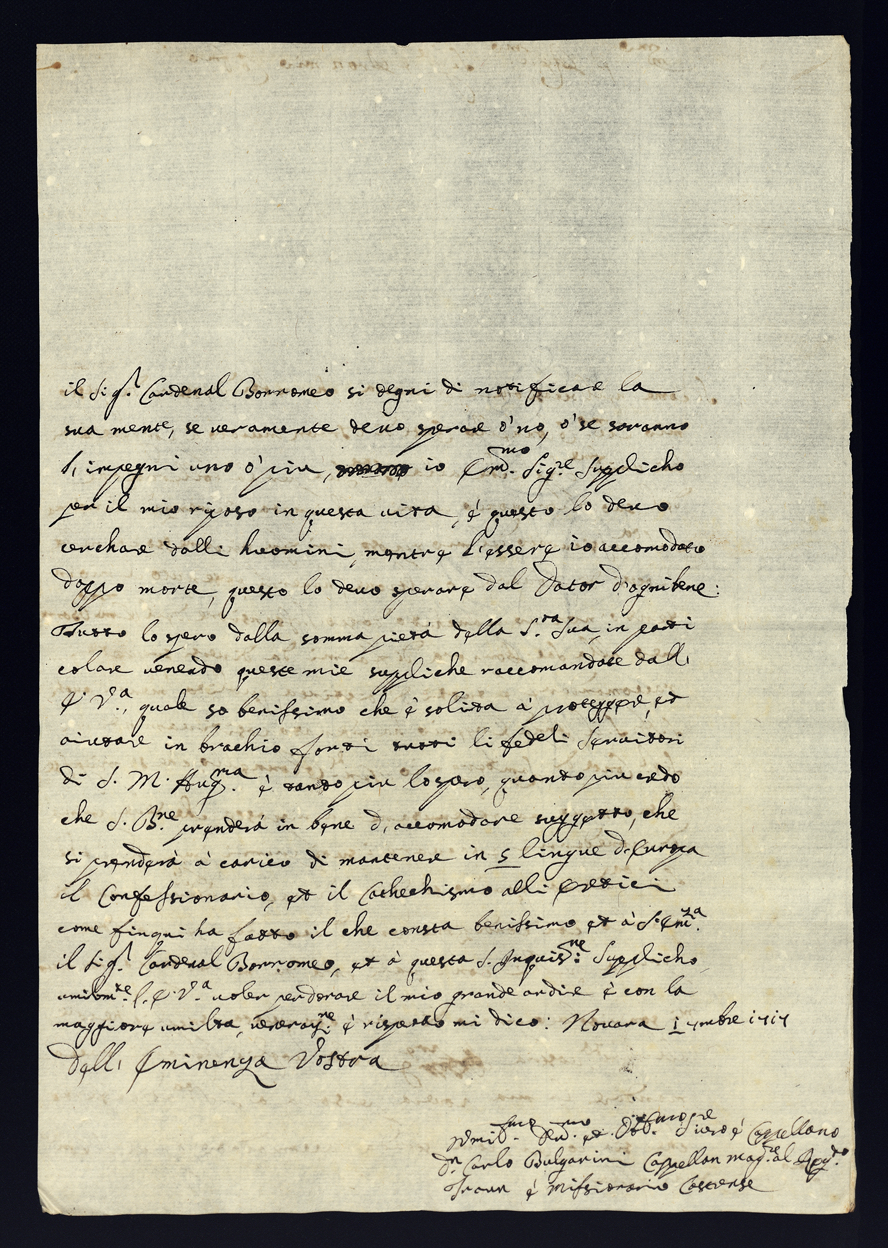 il Sig.r Cardenal Borromeo si degni di notificare la
sua mente, se veramente devo sperare ó no, ó se saranno
l'impegni uno ó piu, io Em.mo Sig.re Supplicho
per il mio riposo in questa vita, é questo lo devo
cerchare dalli huomini, mentre l'essere io accomodato
doppo morte, questo lo devo sperare dal Dator d'ogni bene:
Tutto lo spero dalla somma pietá della S.ra Sua, in parti
colare venendo queste mie suppliche raccomandate dall'
E. V.a, quale so benissimo che é solita á proteggere, et
aiutare in brachio forti tutti li fedeli Servitori
di S. M. Aug.ma é tanto piu lo spero, quanto piu credo
che S. B.ne prenderá in bene d'accomodare suggetto, che
si prenderá á carico di mantenere in 5 lingue d'Europa
il Confessionario, et il Cathechismo alli Eretici
come finqui ha fatto il che consta benissimo et á S. Em.za
il Sig.r Cardenal Borromeo, et á questa S. Inquis.ne Supplicho
umilm.te l'E. V.a voler perdonare il mio grande ardire é con la
maggiore umilta, veneraz.ne é rispetto mi dico: Novara 1 9mbre 1717
Dell' Eminenza Vostra
Umil.mo et Obb.mo Servo é Cappellano
Dn Carlo Bulgarini Cappellan mag.re al Reg.to
Traun é Missionario Castrense